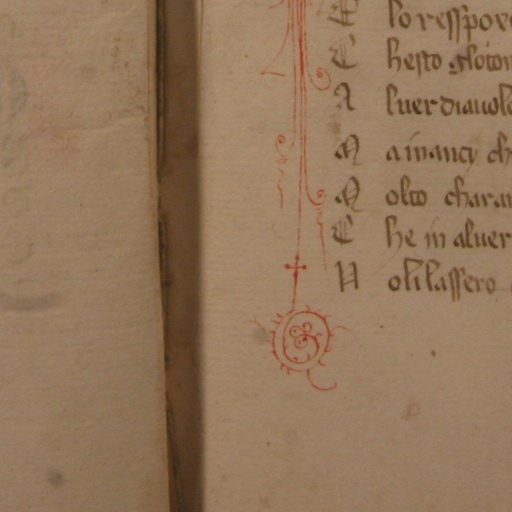 E lo ressspoxe
C hesto gloton
A luer diauolo
M a inanci ch
M olto charam
C he in aluer
N oli lassero